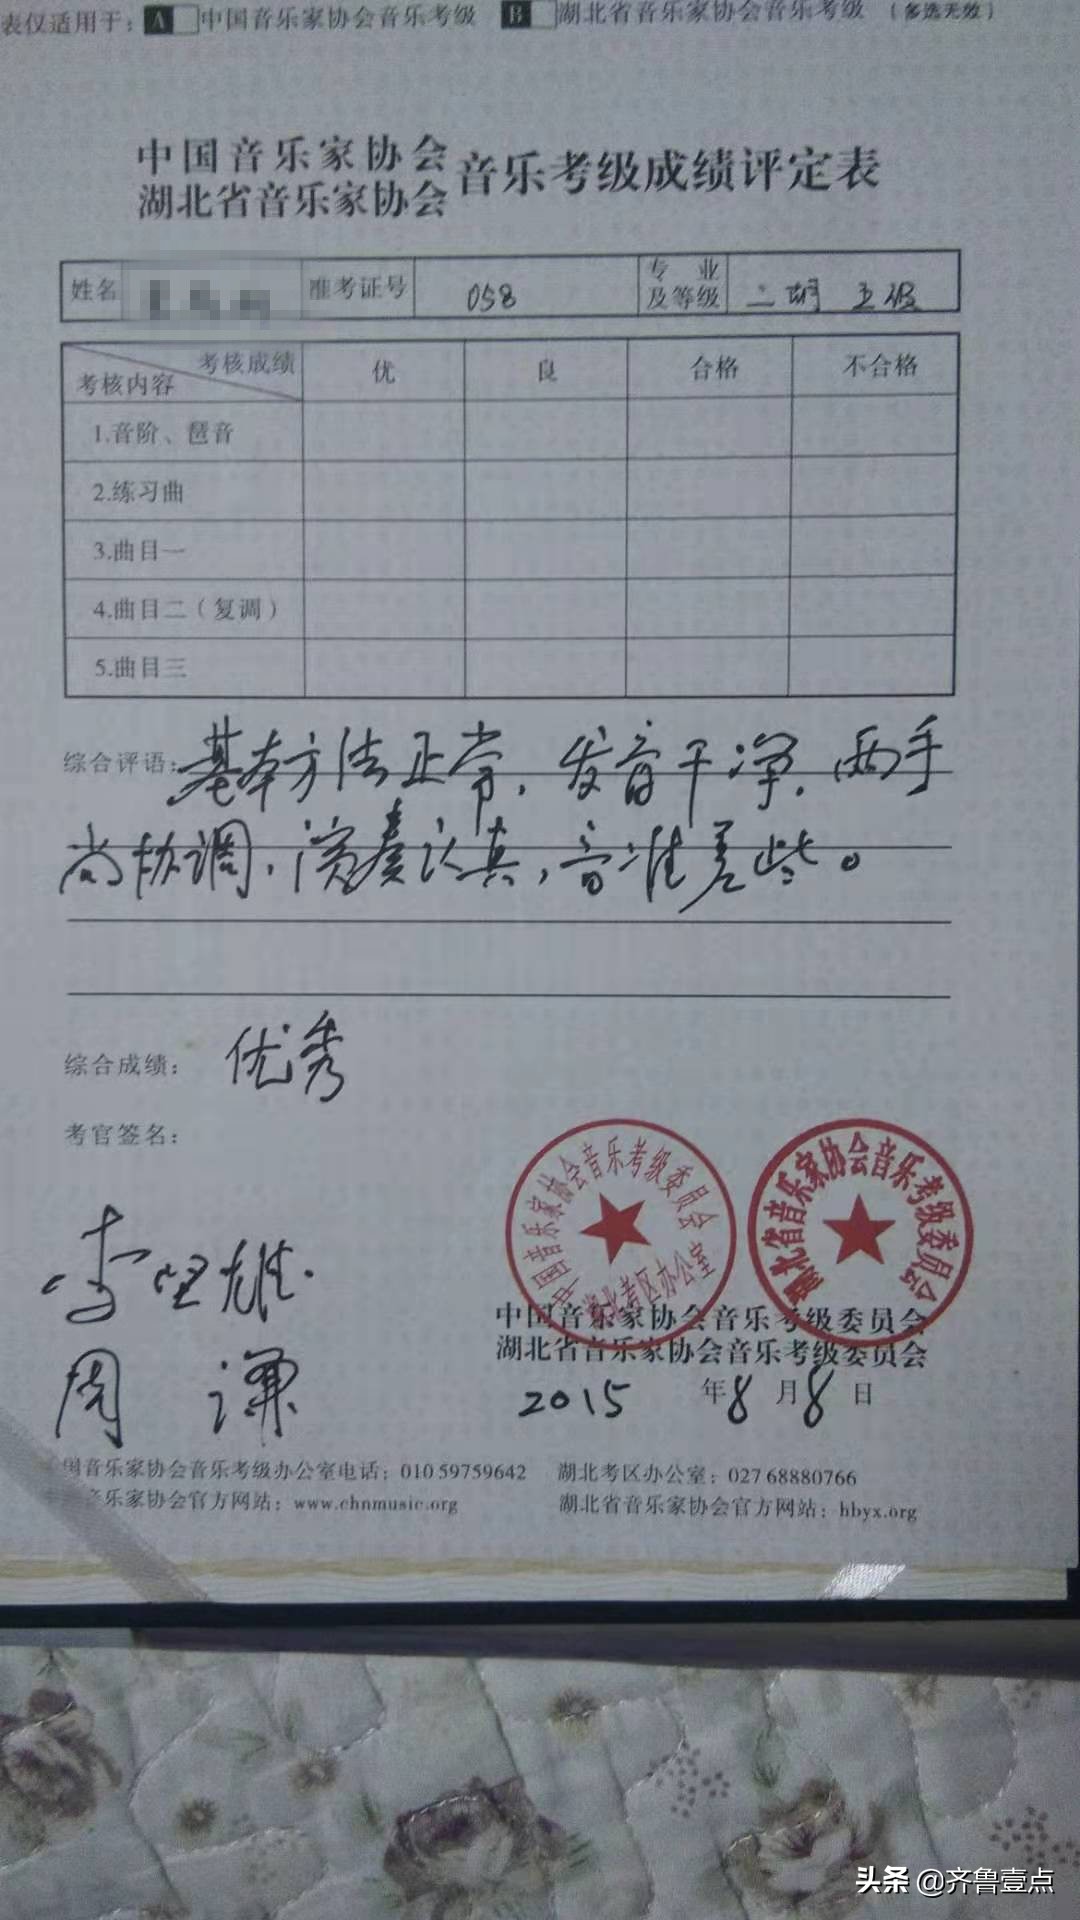 表仅适用于：A 中国音乐家协会音乐考级 B 湖北省音乐家协会音乐考级 （多选无效）
中国音乐家协会
湖北省音乐家协会
音乐考级成绩评定表
姓名 准考证号 058 专业及等级 二胡 五级
考核成绩 考核内容 优 良 合格 不合格
1.音阶、琶音
2.练习曲
3.曲目一
4.曲目二（复调）
5.曲目三
综合评语：基本方法正常，发音干净，两手
尚协调，演奏认真，音准差些。
综合成绩：优秀
考官签名：
中国音乐家协会音乐考级委员会
湖北考区办公室
湖北省音乐家协会音乐考级委员会
周谦
中国音乐家协会音乐考级委员会
湖北省音乐家协会音乐考级委员会
2015年8月8日
国音乐家协会音乐考级办公室电话：010 59759642 湖北考区办公室：027 68880766
音乐家协会官方网站：www.chnmusic.org 湖北省音乐家协会官方网站：hbyx.org
头条 @齐鲁壹点